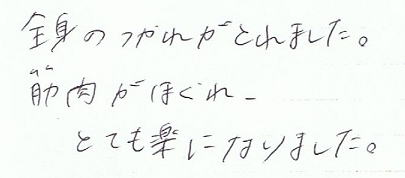 全身のつかれがとれました。
筋肉がほぐれ、
とても楽になりました。